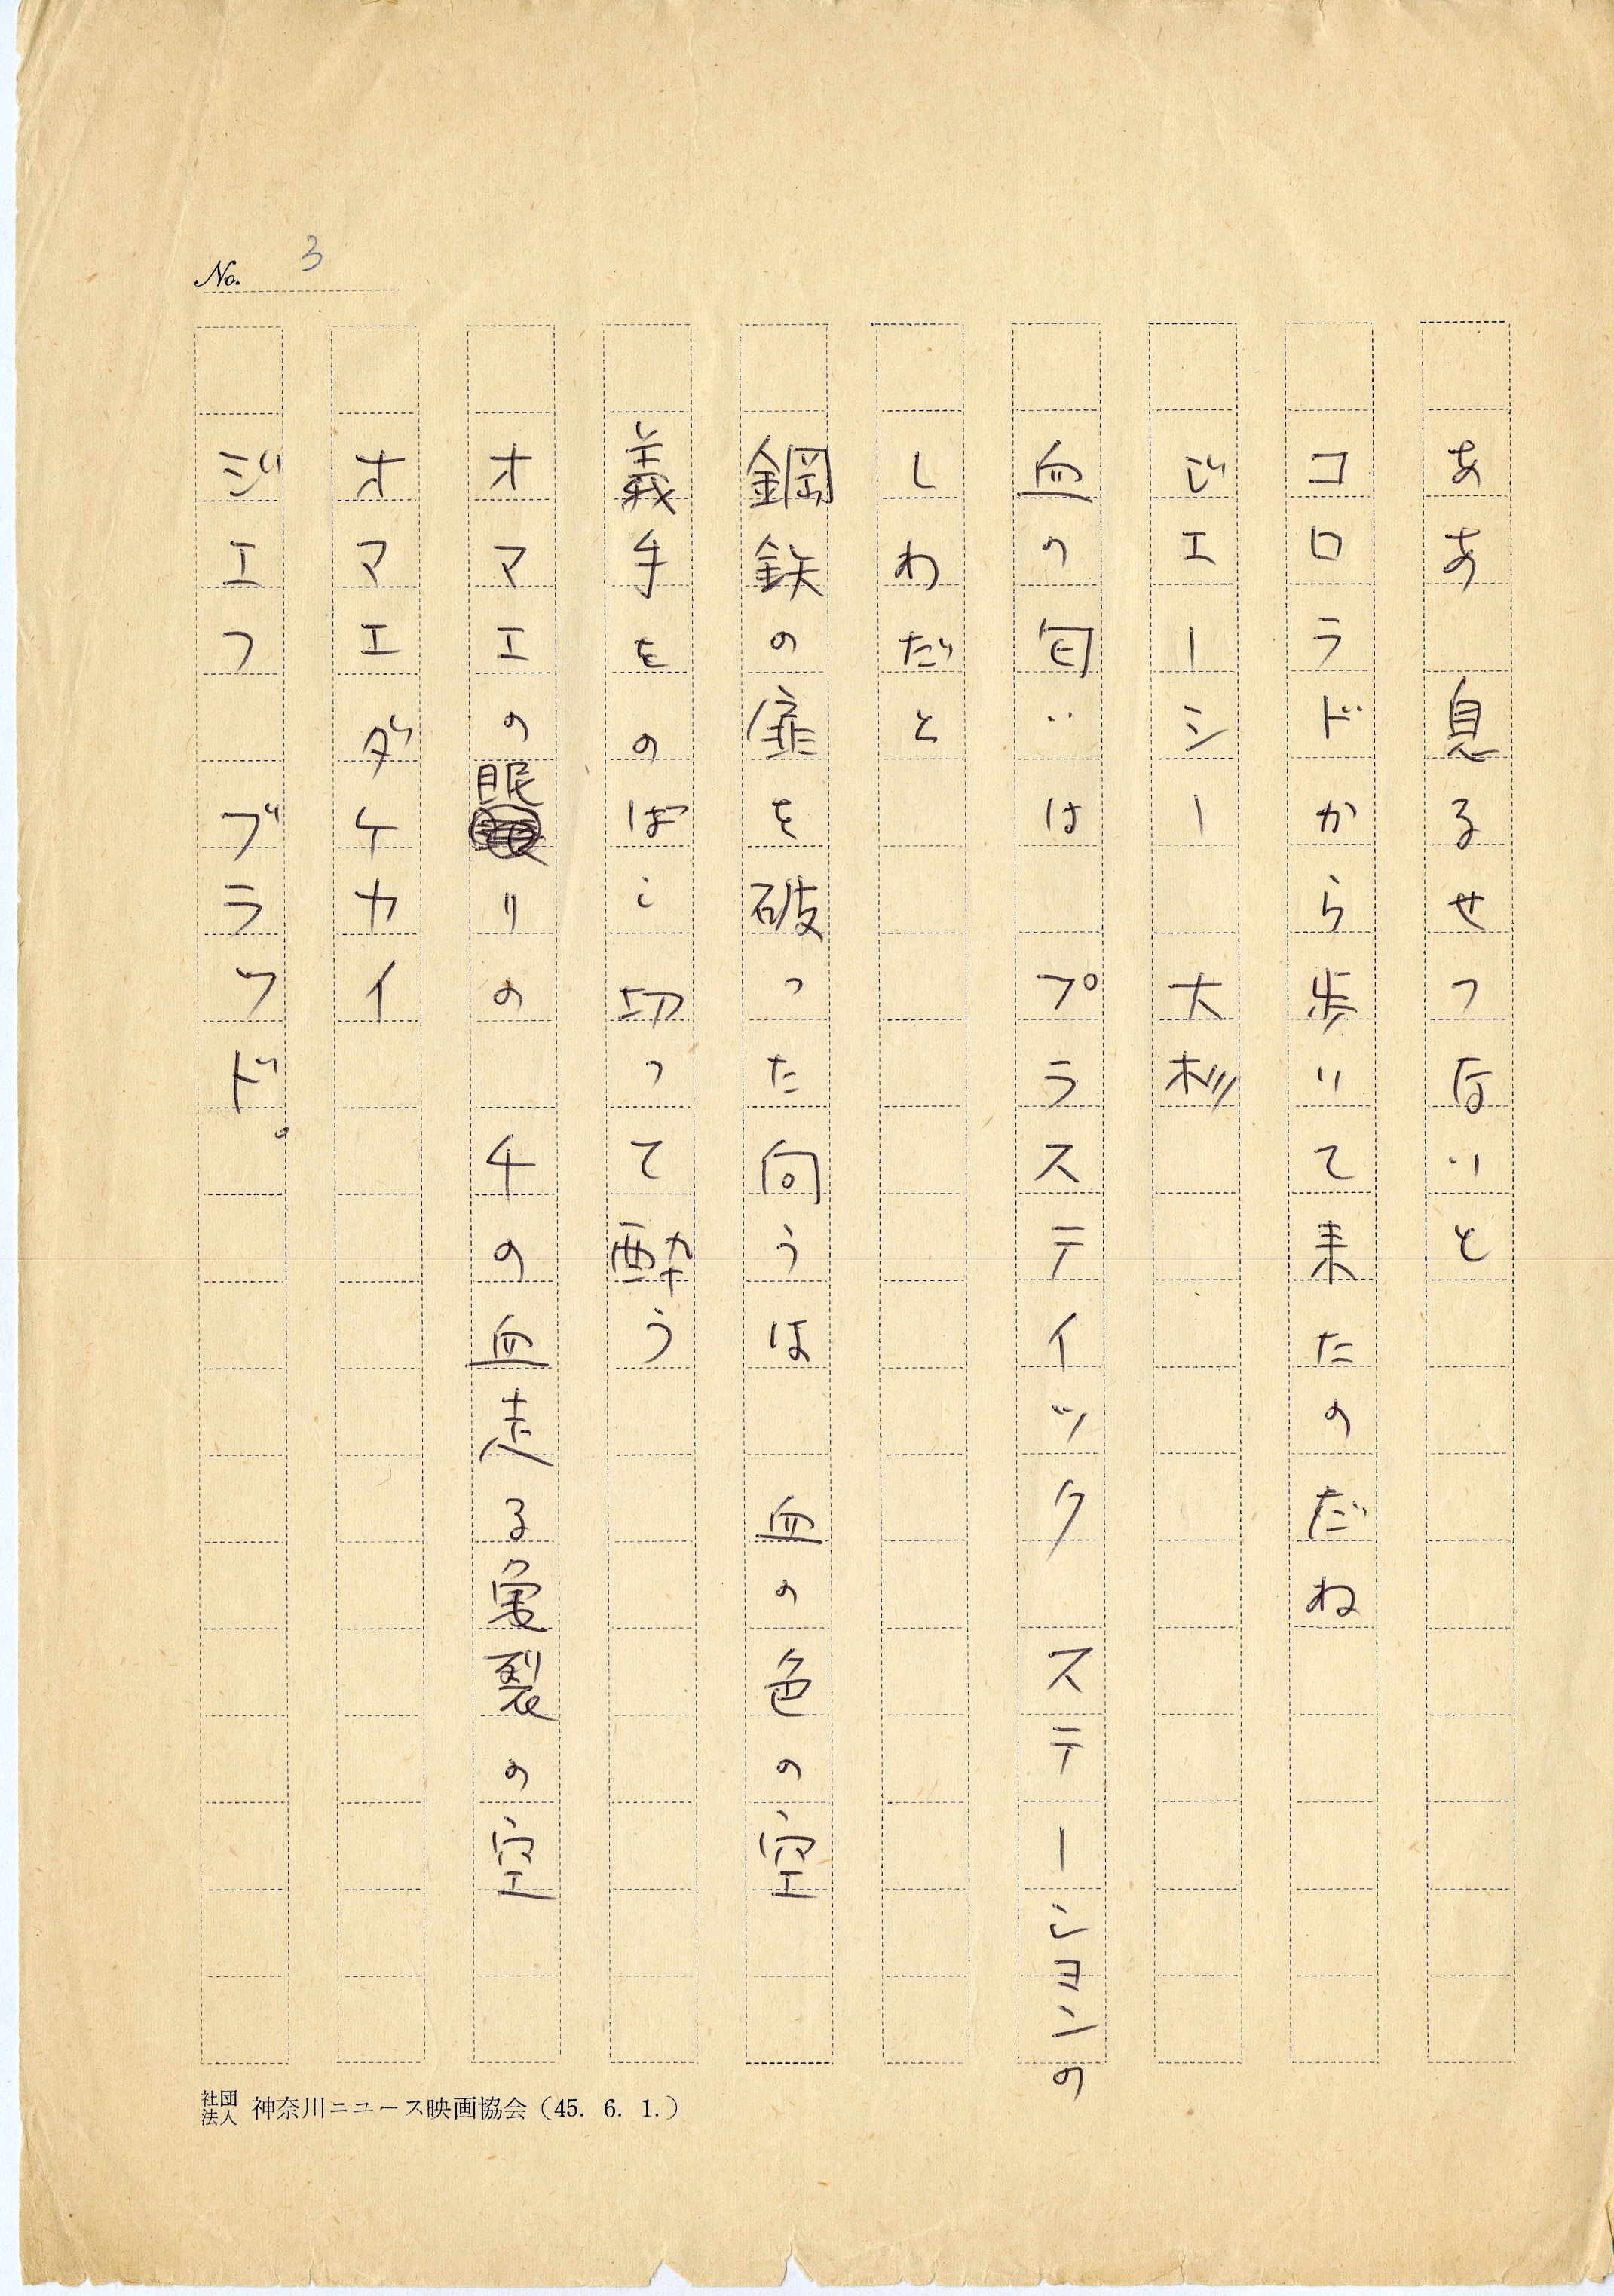 No. 3
ああ　息るせつないと
コロラドから歩いて来たのだね
じエーシー　大杉
血の匂いは　プラステイック　ステーションの
しわだと
鋼鉄の扉を破った向うは　血の色の空
義手をのばし切って酔う
オマエの眠りの　千の血走る裂の空
オマエダケカイ
ジエフ　ブラッド。
社団法人 神奈川ニュース映画協会（45. 6. 1.）